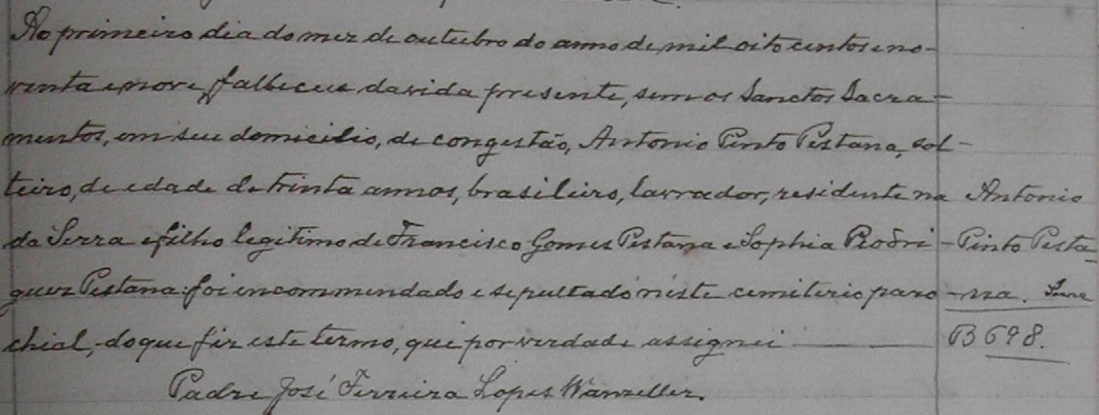 Ao primeiro dia do mez de outubro do anno de mil oito centos e no-
venta e nove, falleceu da vida presente, sem os Sanctos Sacra-
mentos, em seu domicilio, de congestão, Antonio Pinto Pestana, sol-
teiro, de edade de trinta annos, brasileiro, lavrador, residente na
da Serra e filho legitimo de Francisco Gomes Pestana e Sophia Rodri-
guez Pestana: foi encommendado e sepultado n'este cemiterio paro-
chial, do que fiz este termo, que por verdade assignei
Padre José Ferreira Lopes Wanzeller.
Antonio
Pinto Pesta-
na. Serra
B 698.